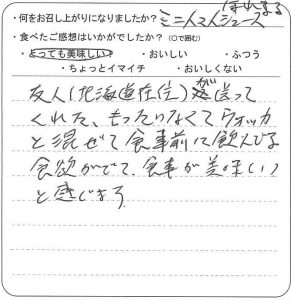 ほれまる
・何をお召し上がりになりましたか？ミニ人参ジュース
・食べたご感想はいかがでしたか？（○で囲む）
・とっても美味しい ・おいしい ・ふつう
・ちょっとイマイチ ・おいしくない
友人（北海道在住）が送って
くれた、もったいなくてウォッカ
と混ぜて食事前に飲んでる
食欲がでて、食事が美味しい
と感じます